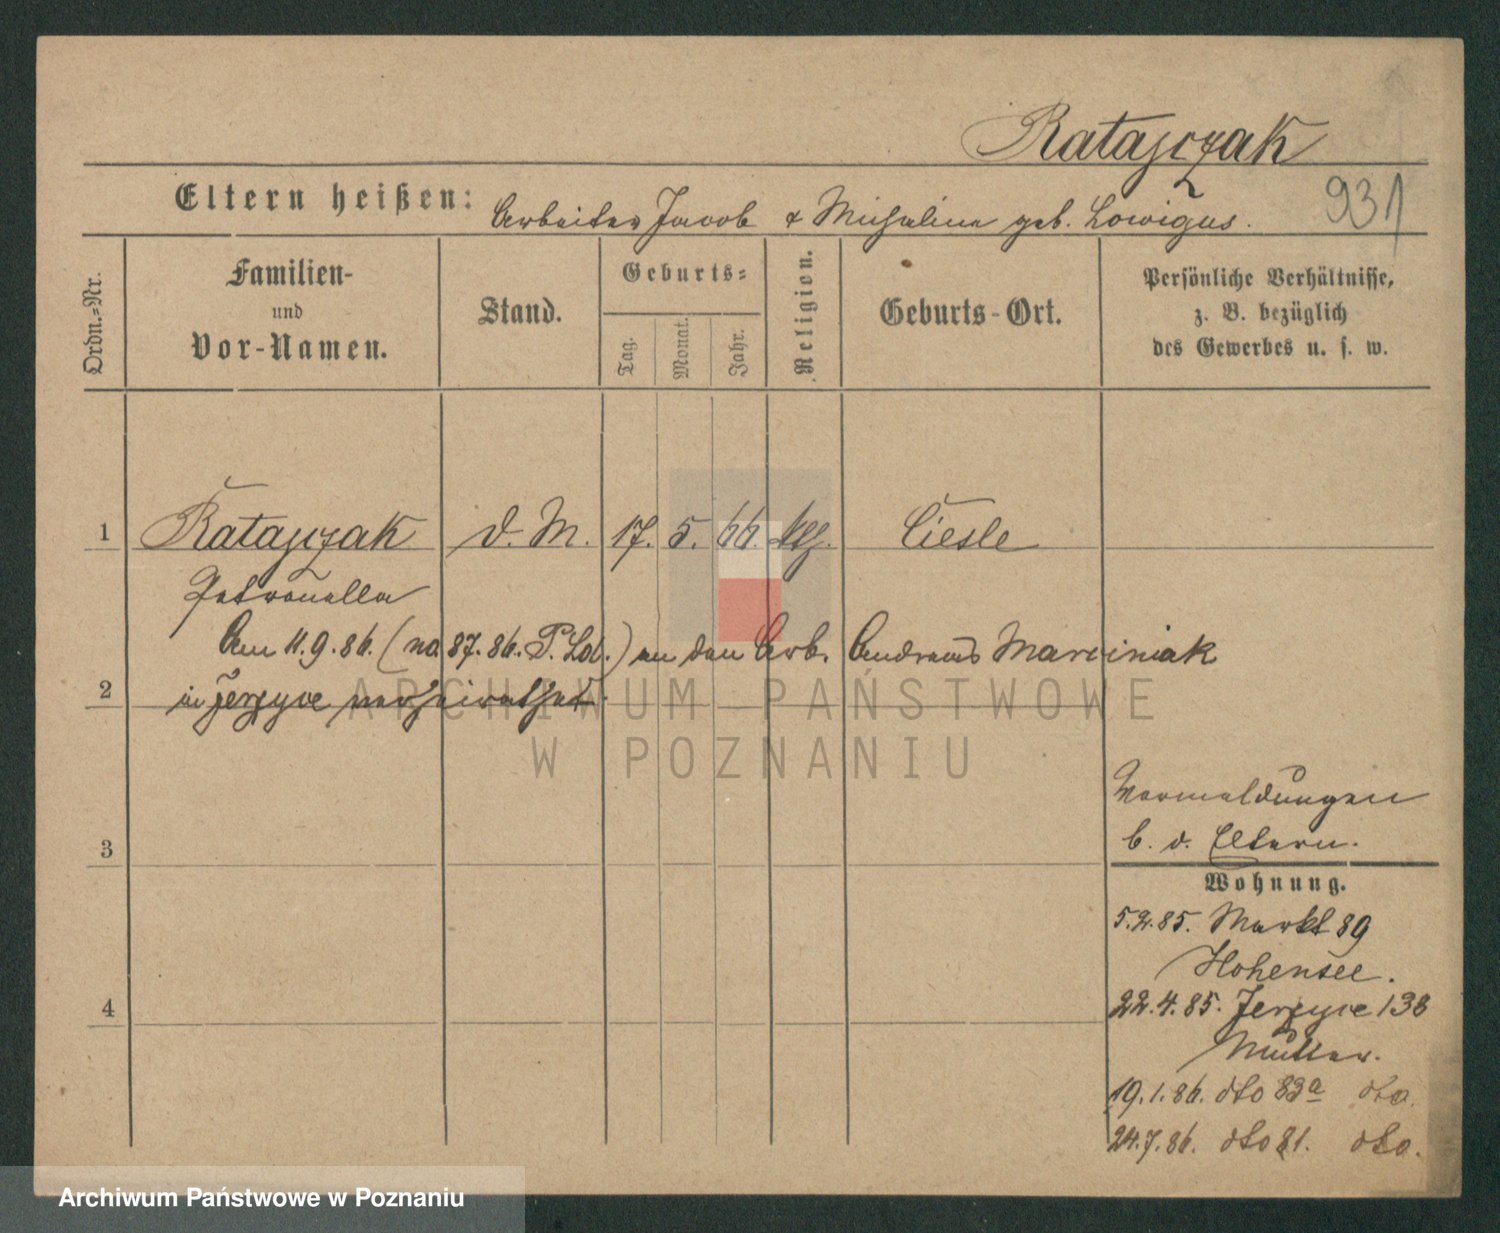 Ratajczak
931
Eltern heißen: Arbeiter Jacob & Michaline geb. Lowigus.
Ordn.-Nr.
Familien-
und
Vor-Namen.
Stand.
Geburts-
Tag.
Monat.
Jahr.
Religion.
Geburts-Ort.
Persönliche Verhältnisse,
z. B. bezüglich
des Gewerbes u. s. w.
1 Ratajczak d. M. 17. 5. 66. Ciesle
Petronella
Am 11.9.86. (no 87.86. P. Lob.) an den Arb. Andreas Marciniak
2 in Jerzyce verheirathet.
ARCHIWUM PAŃSTWOWE
W POZNANIU
Vormeldungen
b. d. Eltern.
3
Wohnung.
5.2.85. Markt 89
Hohensee.
4
22.4.85. Jerzyce 138
Mutter.
19.1.86. dto 83a dto.
24.7.86. dto 81. dto.
Archiwum Państwowe w Poznaniu